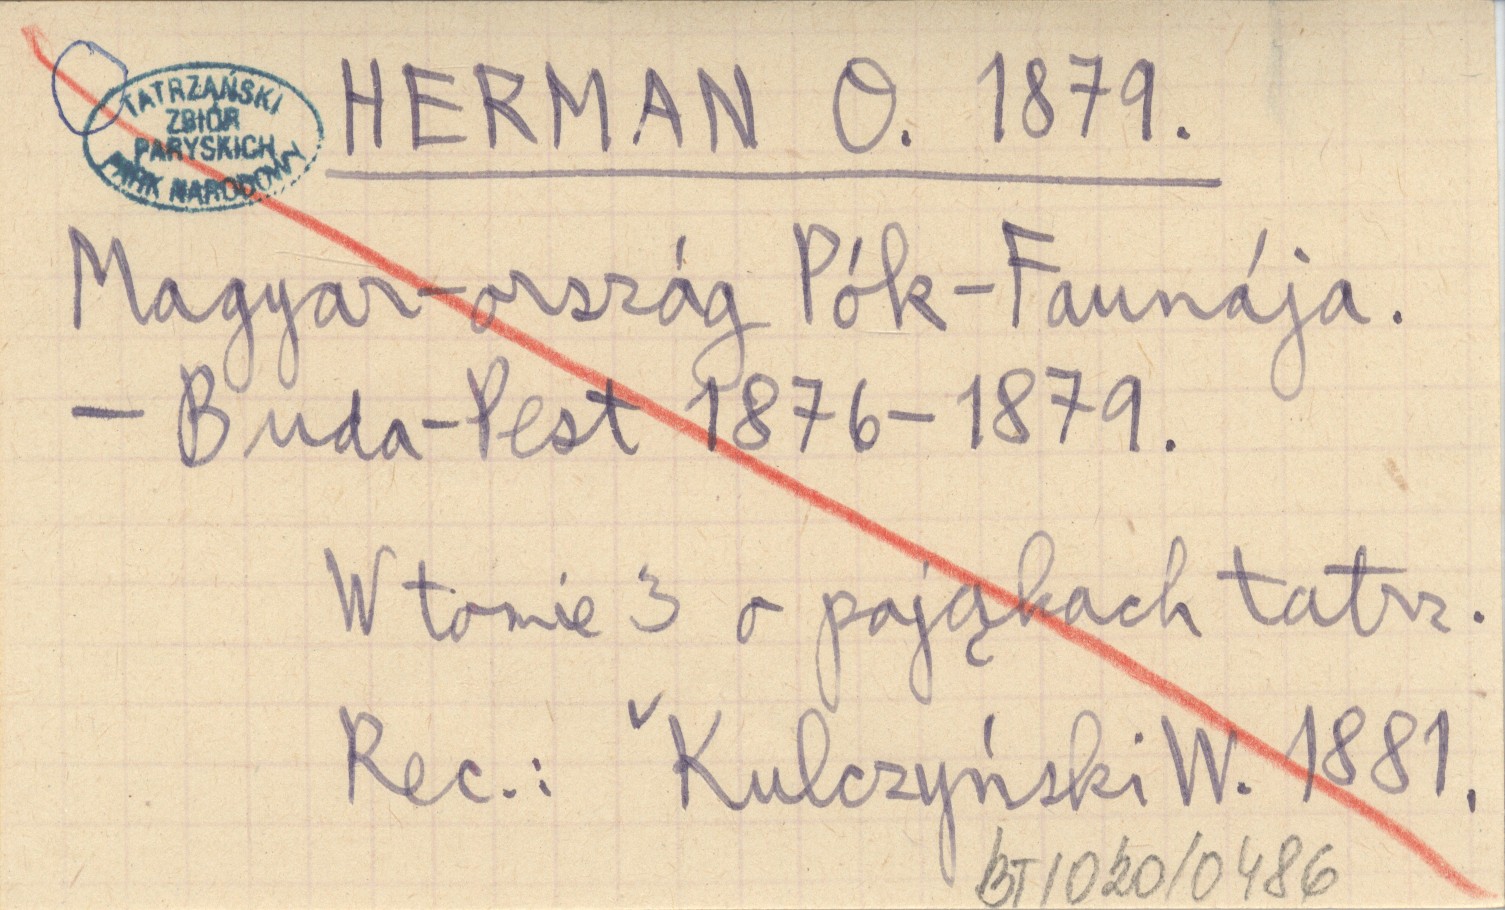 TATRZAŃSKI
ZBIÓR
PARYSKICH
PARK NARODOWY
HERMAN O. 1879.
Magyar-ország Pók-Faunája.
— Buda-Pest 1876-1879.
W tomie 3 o pająkach tatrz.
Rec.: Kulczyński W. 1881.
BT/020/0486